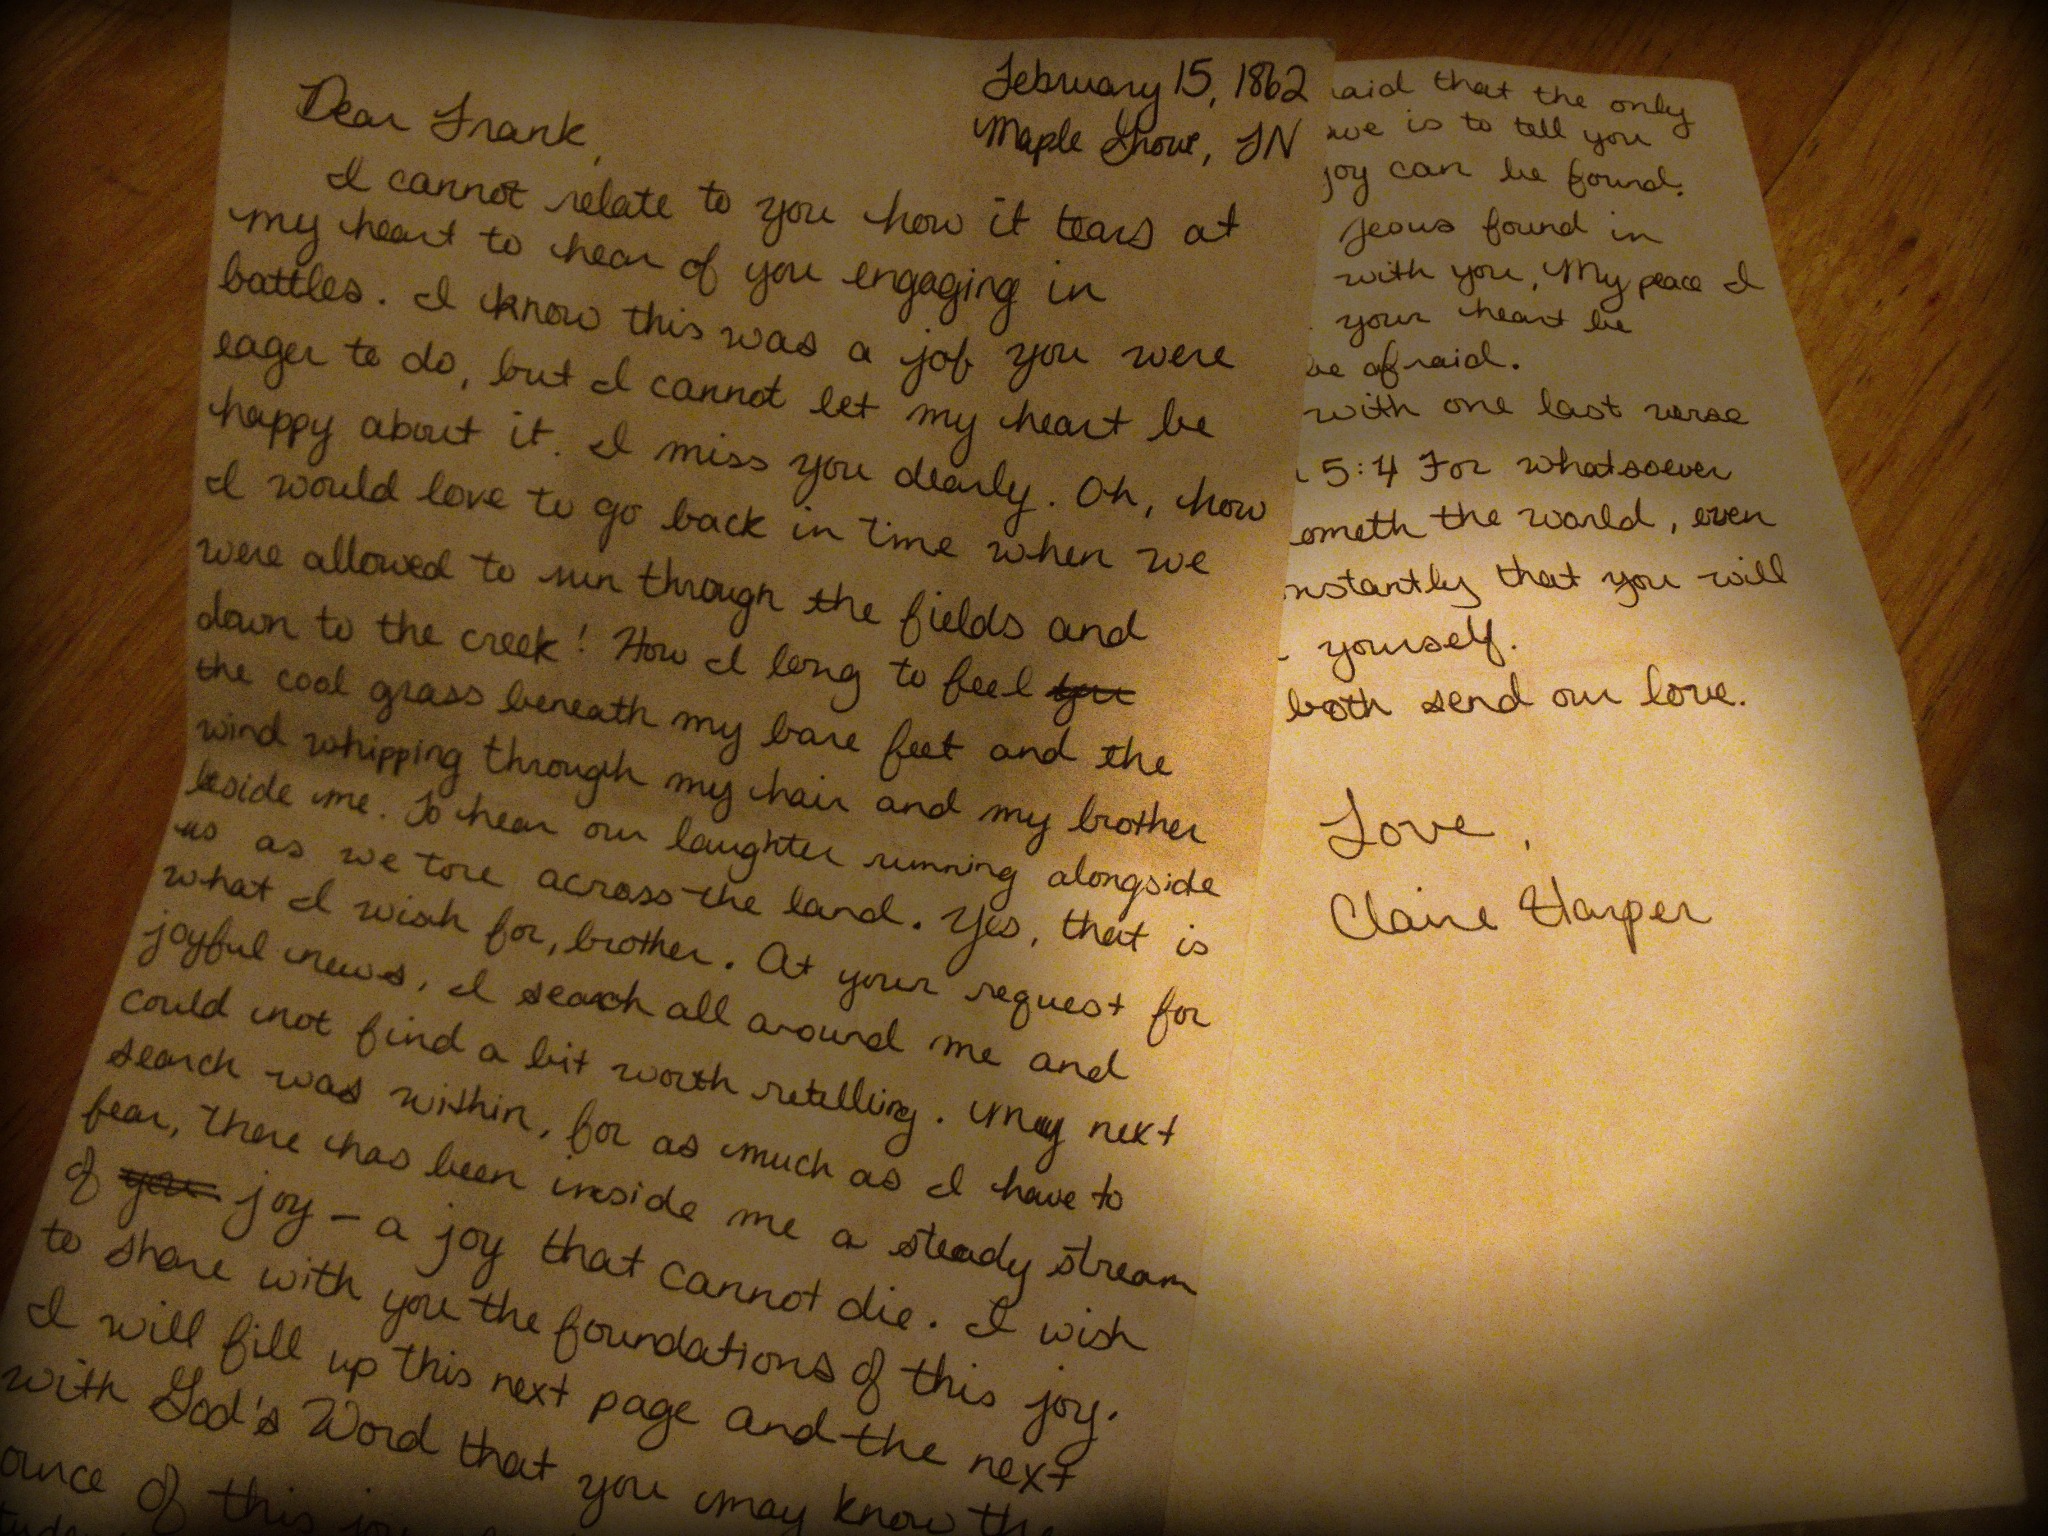 February 15, 1862
Maple Grove, TN
Dear Frank,
I cannot relate to you how it tears at
my heart to hear of you engaging in
battles. I know this was a job you were
eager to do, but I cannot let my heart be
happy about it. I miss you dearly. Oh, how
I would love to go back in time when we
were allowed to run through the fields and
down to the creek! How I long to feel you
the cool grass beneath my bare feet and the
wind whipping through my hair and my brother
beside me. To hear our laughter running alongside
us as we tore across the land. Yes, that is
what I wish for, brother. At your request for
joyful news, I search all around me and
could not find a bit worth retelling. My next
search was within, for as much as I have to
fear, there has been inside me a steady stream
of you joy - a joy that cannot die. I wish
to share with you the foundations of this joy.
I will fill up this next page and the next
with God's Word that you may know the
ounce of this
aid that the only
is to tell you
joy can be found.
Jesus found in
with you, My peace I
your heart be
be afraid.
with one last verse
5:4 For whatsoever
ometh the world, even
nstantly that you will
yourself.
both send our love.
Love,
Claire Harper